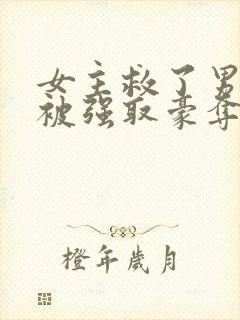 女主救了男
被强取豪夺
橙年岁月